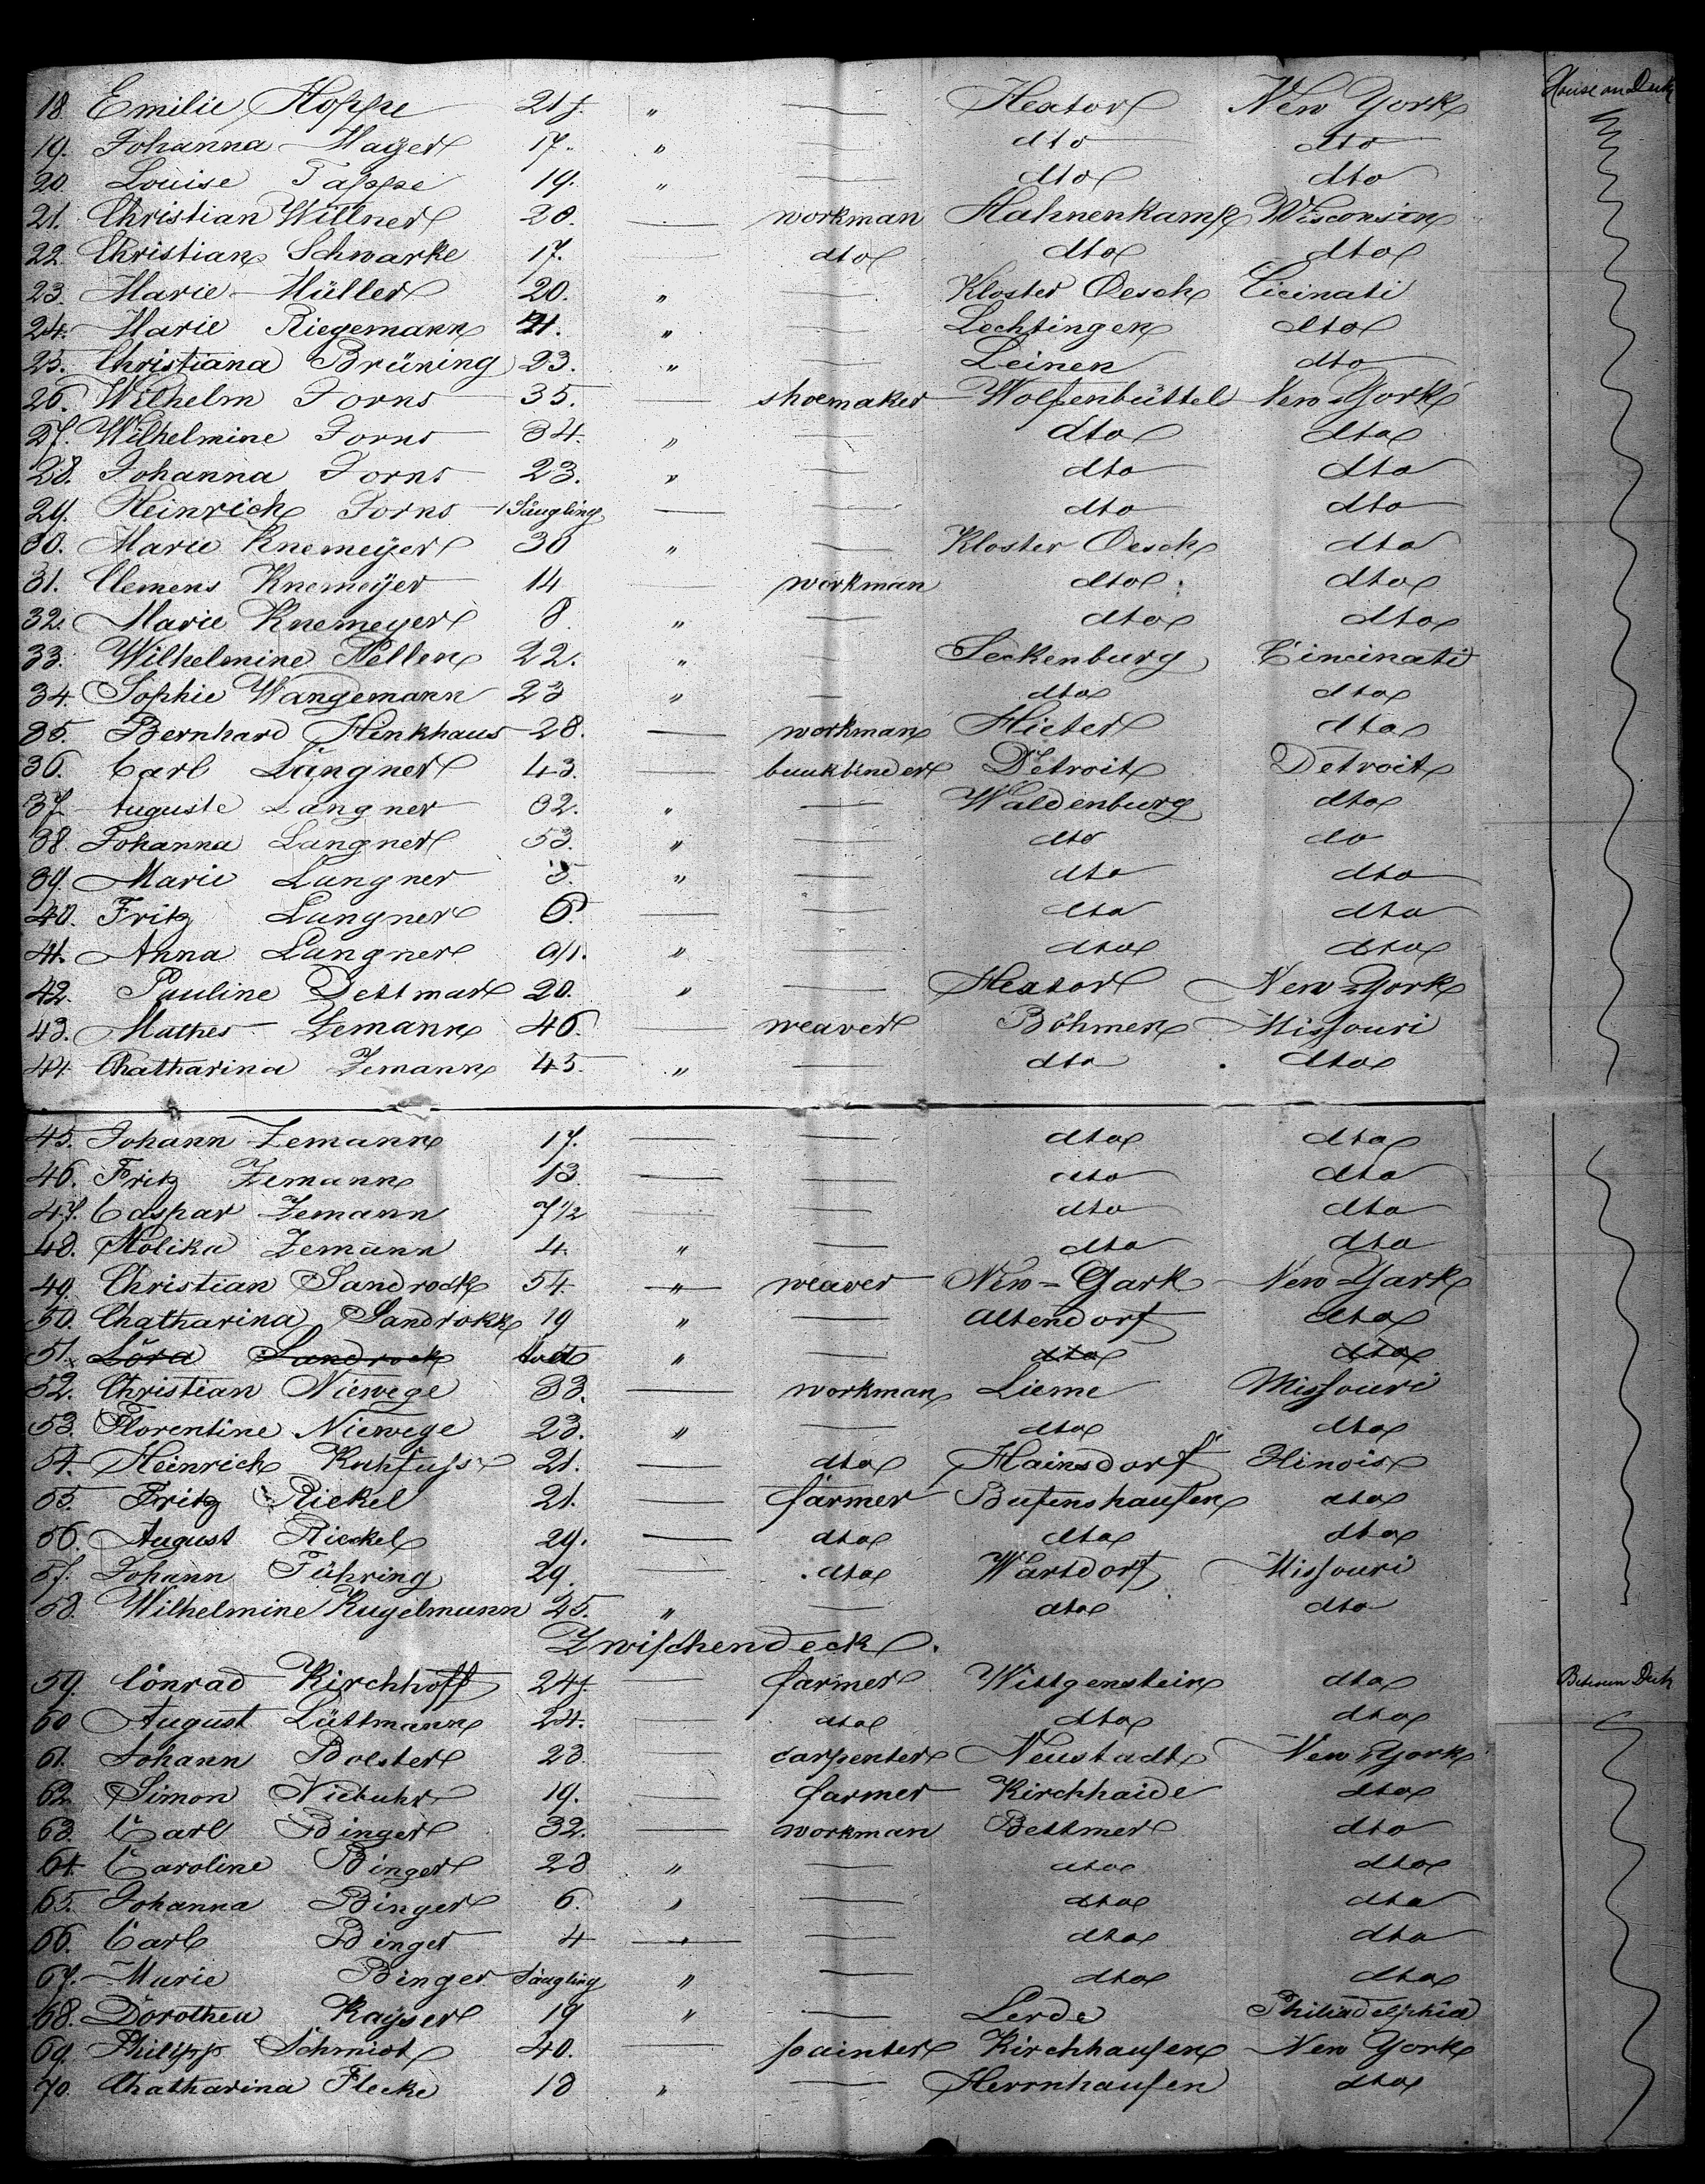 House on Deck
18. Emilie Hoppe 21 j. " — Hextor New York
19. Johanna Mayer 17. " — dto dto
20. Louise Tappe 19. " — dto dto
21. Christian Willner 20. — workman Hahnenkamp Wisconsin
22. Christian Schwarke 17. — dto dto dto
23. Marie Müller 20. " — Kloster Oesch Cicinati
24. Marie Riegemann 21. " — Lechtingen dto
25. Christiana Brüning 23. " — Leinen dto
26. Wilhelm Forns 35. — shoemaker Wolfenbüttel New York
27. Wilhelmine Forns 34. " — dto dto
28. Johanna Forns 23. " — dto dto
29. Heinrich Forns Säugling — — dto dto
30. Marie Knemeÿer 30 " — Kloster Oesch dto
31. Clemens Knemeÿer 14 — workman dto dto
32. Marie Knemeyer 8. " — dto dto
33. Wilhelmine Nellen 22. " — Leckenburg Cincinati
34. Sophie Wangemann 23 " — dto dto
35. Bernhard Henkhaus 28. — workman Hieter dto
36. Carl Längner 43. — buukbinder Detroit Detroit
37. Auguste Langner 32. " — Waldenburg dto
38. Johanna Langner 53. " — dto do
39. Marie Langner 5. " — dto dto
40. Fritz Langner 6. — — dto dto
41. Anna Langner " — dto dto
42. Pauline Dettmar 20. " — Hextor New York
43. Mathes Zemann 46. — weaver Böhmen Missouri
44. Chatharina Zemann 45. " — dto dto
45. Johann Zemann 17. — — dto dto
46. Fritz Zemann 13 — — dto dto
47. Caspar Zemann 7 1/2 — — dto dto
48. Molika Zemann 4. " — dto dto
49. Christian Sandrock 54. " weaver New-York New York
50. Chatharina Sandrokk 19 " — Altendorf dto
51. Dora Sandrock todt " — dto dto
52. Christian Niewege 33. — workman Lieme Missouri
53. Florentine Niewege 23. " — dto dto
54. Heinrich Kuhfuss 21. — dto Hainsdorf Ilinois
55. Fritz Rickel 21. — farmer Busenshausen dto
56. August Rickel 29. — dto dto dto
57. Johann Führing 29. — dto Warsdorf Missouri
58. Wilhelmine Kugelmann 25. " — dto dto
Zwischendeck.
59. Conrad Kirchhoff 24 j. — farmer Wittgenstein dto Between Deck
60 August Lüttmann 24. — dto dto dto
61. Johann Bolster 23. — carpenter Neustadt New York
62. Simon Niebuhr 19. — farmer Kirchhaide dto
63. Carl Binger 32. — workman Bettmer dto
64 Caroline Binger 28 " — dto dto
65. Johanna Binger 6. " — dto dto
66. Carl Binger 4 — — dto dto
67. Marie Binger Säugling " — dto dto
68. Dorothea Kaÿser 19 " — Lerde Philiadelphia
69. Philipp Schmidt 40. — painter Kirchhausen New York
70. Chatharina Flecke 18 " — Herrnhausen dto